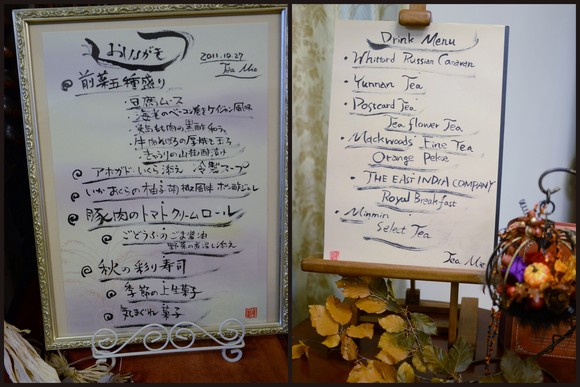 おしながき
2011.10.27
Tea Mie
前菜五種盛り
豆腐ムース
海老のベーコン巻きケイジャン風味
鶏もも肉の黒酢和え
厚焼き玉子
きゅうりの山椒酢漬け
アボガド、いくら添え 冷製スープ
いか あくらの柚子胡椒風味 ポン酢ジュレ
豚肉のトマトクリームロール
ごどうふのごま醤油
野菜の煮浸し添え
秋の彩り寿司
季節の上生菓子
気まぐれ菓子
Drink Menu
Whittard Russian Caravan
Yunnan Tea
Postcard Tea
Tea flower Tea
Mackwoods' Fine Tea
Orange Pekoe
THE EAST INDIA COMPANY
Royal Breakfast
Minmin
Select Tea
Tea Mie